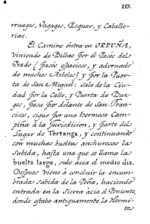 113.
rruages, Vagages, Reguas, y Caballe-
rias.
El Camino entra en ORDUÑA,
viniendo de Bilbao por el Paseo del
Prado (Paseo espacioso, y adornado
de muchos Arboles) y por la Puerta
de San Miguel: Sale de la Ciu-
dad por la Calle, y Puerta de Bur-
gos, Pasa por delante de San Fran-
cisco, sigue por una hermosa Campi-
ña a la Jurisdiccion, y parte del
Lugar de Tertanga, y continuando
con muchas bueltas anchurosas la
Subida, hasta una que se llama la
buelta larga, sube acia el medio dia.
Despues viene à concluir la encum-
brada Subida de la Peña, haciendo
entrada en la Sierra acia el Poniente
donde estaba antiguamente la Hermi-